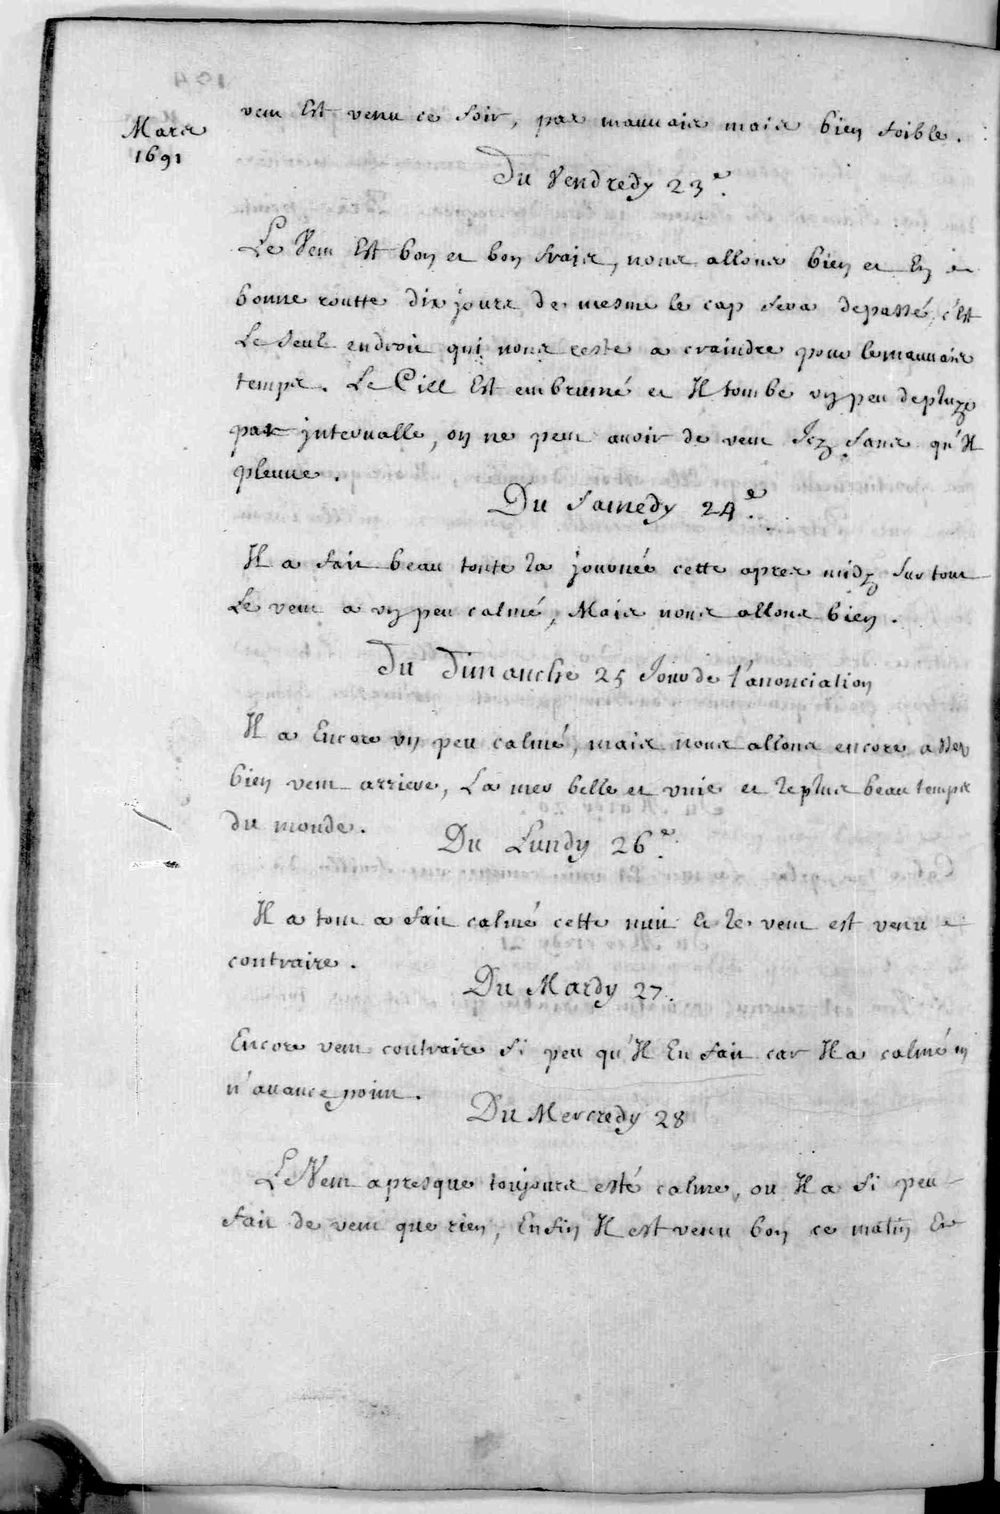 Mars
1691
vent Est venu ce soir, pas mauuais mais bien foible.
Du Vendredy 23e.
Le Vent Est bon et bon frais, nous allons bien et En
bonne routte dix jours de mesme le cap sera depassé, c'est
Le seul endroit qui nous reste a craindre pour le mauuais
temps. Le Ciel Est embrumé et Il tombe un peu de pluye
par interualle, on ne peut auoir de vent Icy sans qu'Il
pleuue.
Du Samedy 24e.
Il a fait beau toute la journée cette apres midy sur tout
Le vent a un peu calmé, Mais nous allons bien.
Du Dimanche 25 Jour de l'anonciation
Il a Encore un peu calmé, mais nous allons encore assez
bien vent arriere, La mer belle et unie et le plus beau temps
du monde.
Du Lundy 26e.
Il a tout a fait calmé cette nuit Et le vent est venu
contraire.
Du Mardy 27.
Encore vent contraire si peu qu'Il En fait car Il a calmé
n'auance point.
Du Mercredy 28
Le Vent a presque toujours esté calme, ou Il a si peu
fait de vent que rien, Enfin Il est venu bon ce matin Et